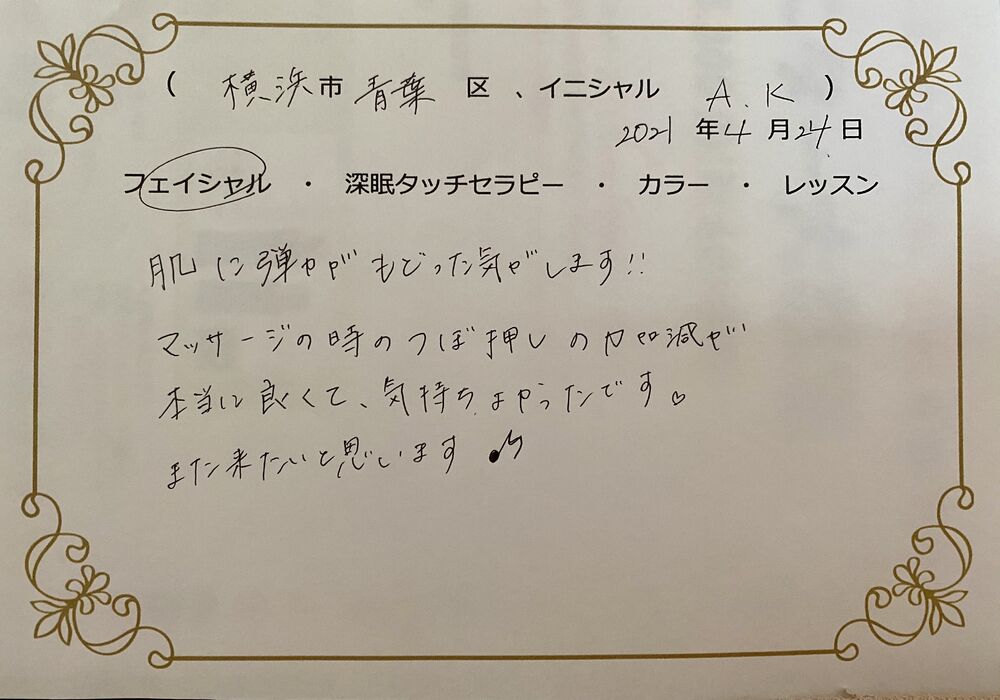 ( 横浜市 青葉 区 、イニシャル A.K )
2021 年 4 月 24 日
フェイシャル ・ 深眠タッチセラピー ・ カラー ・ レッスン
肌に弾力がもどった気がします!!
マッサージの時のつぼ押しの力加減が
本当に良くて、気持ちよかったです♡
また来たいと思います♪